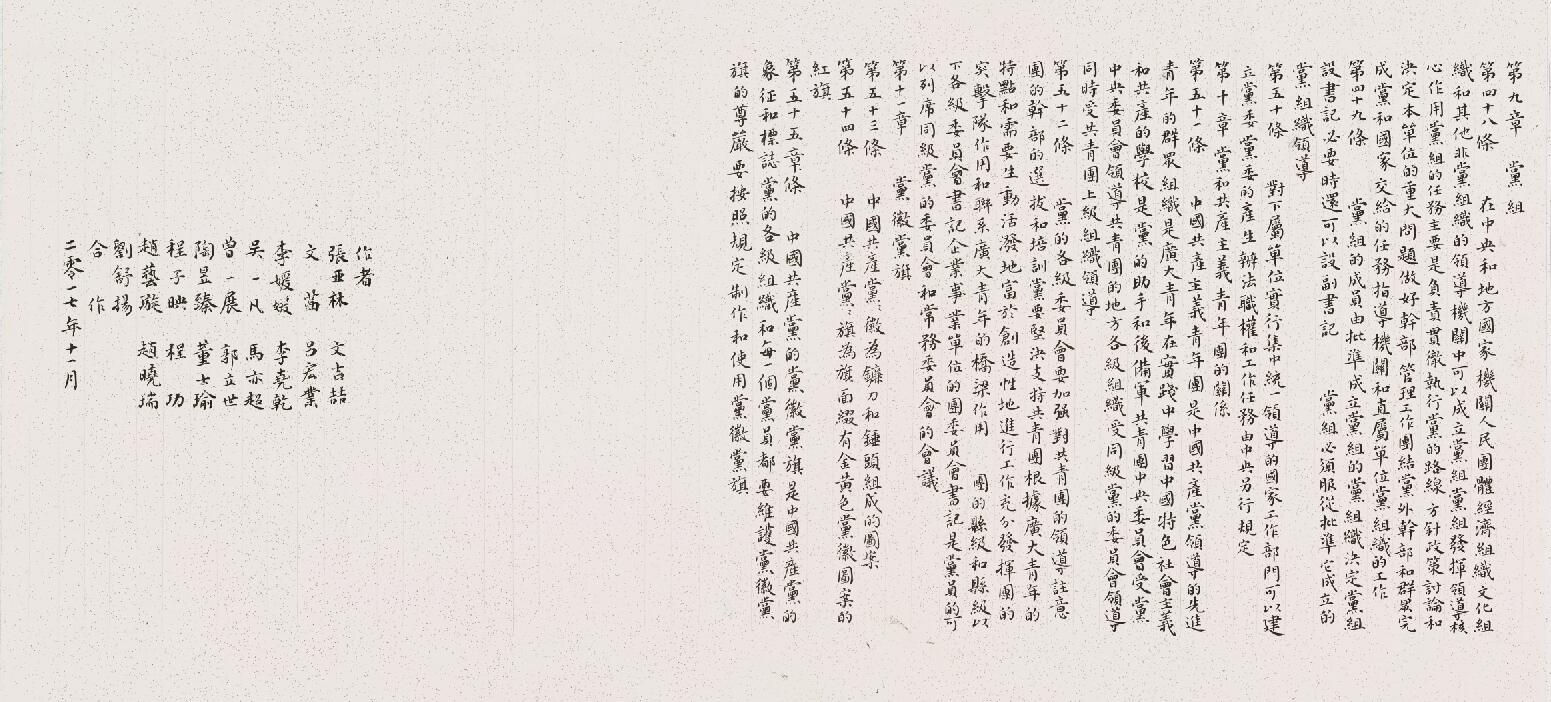 第九章　黨組
第四十八條　在中央和地方國家機關人民團體經濟組織文化組
織和其他非黨組織的領導機關中可以成立黨組黨組發揮領導核
心作用黨組的任務主要是負責貫徹執行黨的路線方針政策討論和
決定本單位的重大問題做好幹部管理工作團結黨外幹部和群眾完
成黨和國家交給的任務指導機關和直屬單位黨組織的工作
第四十九條　黨組的成員由批準成立黨組的黨組織決定黨組
設書記必要時還可以設副書記　黨組必須服從批準它成立的
黨組織領導
第五十條　對下屬單位實行集中統一領導的國家工作部門可以建
立黨委黨委的產生辦法職權和工作任務由中央另行規定
第十章　黨和共產主義青年團的關係
第五十一條　中國共產主義青年團是中國共產黨領導的先進
青年的群眾組織是廣大青年在實踐中學習中國特色社會主義
和共產的學校是黨的助手和後備軍共青團中央委員會受黨
中央委員會領導共青團的地方各級組織受同級黨的委員會領導
同時受共青團上級組織領導
第五十二條　黨的各級委員會要加強對共青團的領導註意
團的幹部的選拔和培訓黨要堅決支持共青團根據廣大青年的
特點和需要生動活潑地富於創造性地進行工作充分發揮團的
突擊隊作用和聯系廣大青年的橋梁作用　團的縣級和縣級以
下各級委員會書記企業事業單位的團委員會書記是黨員的可
以列席同級黨的委員會和常務委員會的會議
第十一章　黨徽黨旗
第五十三條　中國共產黨黨徽為鐮刀和錘頭組成的圖案
第五十四條　中國共產黨黨旗為旗面綴有金黃色黨徽圖案的
紅旗
第五十五章條　中國共產黨的黨徽黨旗是中國共產黨的
象征和標誌黨的各級組織和每一個黨員都要維護黨徽黨
旗的尊嚴要按照規定制作和使用黨徽黨旗
作者
張亚林　文吉喆
文茜　呂宏業
李媛媛　李堯乾
吴一凡　馬亦超
曾一展　郭立世
陶昱臻　董士瑜
程子映　程功
趙藝璇　趙曉瑞
劉舒揚
合作
二零一七年十一月